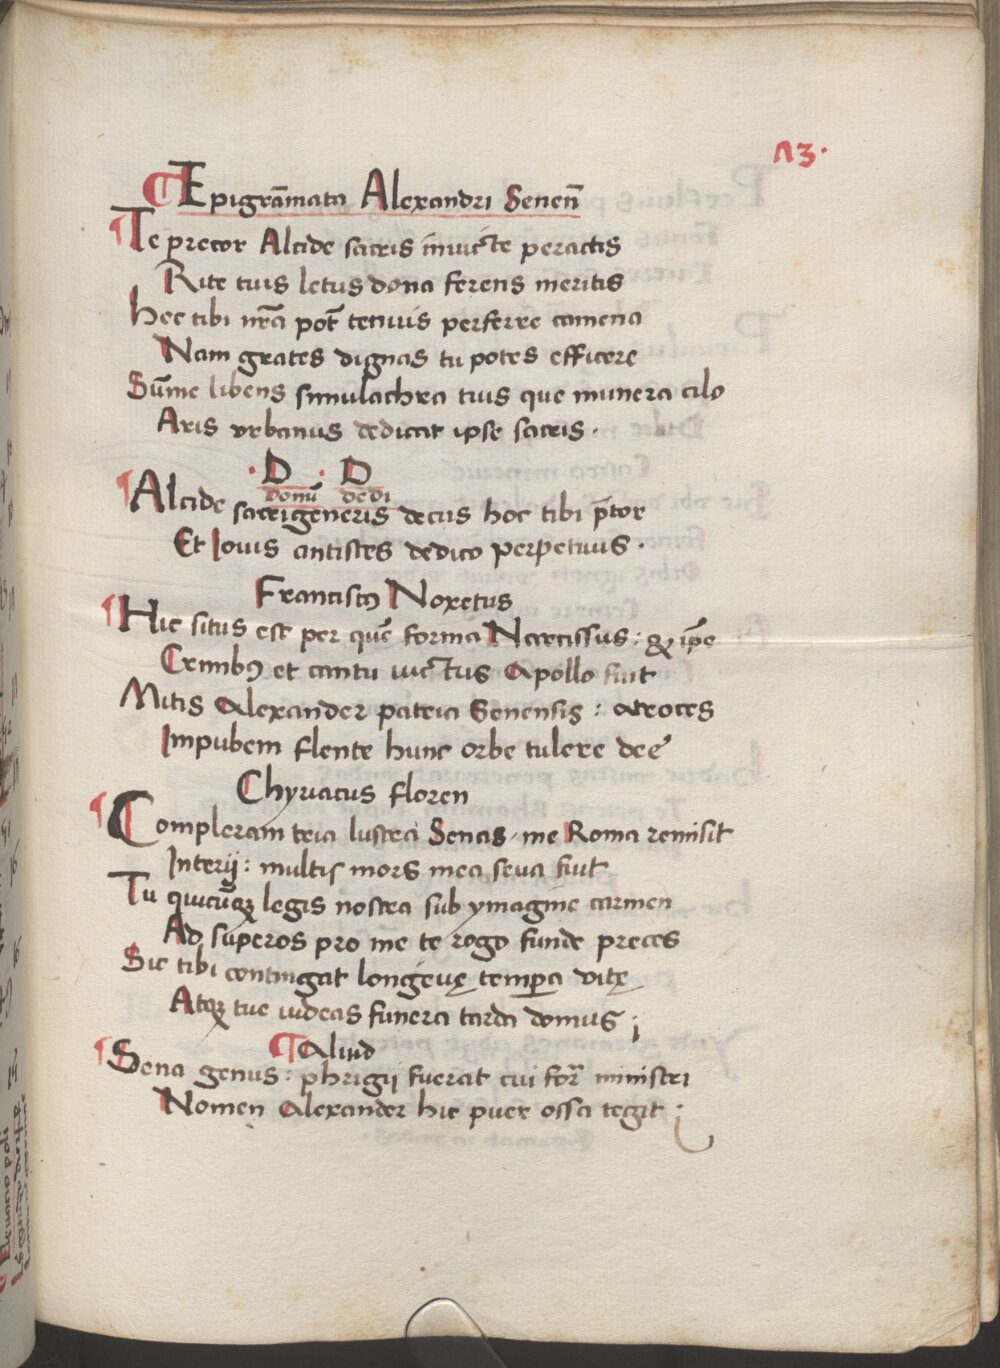 13.
Epigrāmata Alexandri Senen̄
Te precor Alcide sacris inuicte peractis
Rite tuis letus dona ferens meritis
Hec tibi nr̄a pot̄ tenuis perferre camena
Nam grates dignas tu potes efficere
Sūme libens simulachra tuis que munera cilo
Aris vrbanus dedicat ipse sacris.
·D· D
donū dedi
Alcide sacrigeneris decus hoc tibi p̄tor
Et Iouis antistes dedico perpetuus.
Franciscꝯ Noxetus
Hic situs est per quē forma Narcissus: & ip̄e
Crinibꝯ et cantu uictus Apollo fuit
Mitis Alexander patria Senensis: atroces
Impubem flente hunc orbe tulere deę
Chyriacus floren
Compleram tria lustra Senas, me Roma remisit
Interij: multis mors mea seua fuit
Tu quicūqꝫ legis nostra sub ymagine carmen
Ad superos pro me te rogo funde preces
Sic tibi contingat longeuę temꝑa vitę
Atqꝫ tue uideas funera tarda domus;
Aliud
Sena genus: phrigij fuerat cui for̄ ministri
Nomen Alexander hic puer ossa tegit;